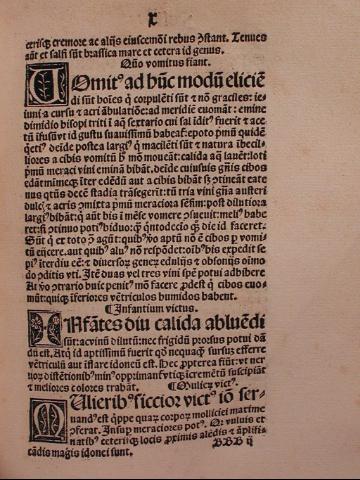 x
cerisq; cremore ac alijs eiuscemōi rebus ꝯstant. Tenues
aūt et salsi sūt brassica mare et cetera id genus.
Quō vomitus fiant.
Uomit⁹ ad hūc modū eliciē
di sūt boīes q̄ corpulēti sūt & nō graciles: ie-
iuni a cursu & acri ābulatiōe: ad meridiē euomāt: emine
dimidio bisopi triti ī aq̄ sextario cui sal idit⁹ fuerit & ace
tū īfusūvt id gustu suauissimū habeat: epoto p̄mū quidē
deīde postea largi⁹ q̄ macilēti sūt & natura ībecil-
liores a cibis vomitū mō moueāt: calida aq̄ lauēt: loti
p̄mū meraci vini eminā bibāt. deīde cuiusuis gn̄is cibos
edāt nimecq; iter edēdū aut a cibis bibāt ꝯtineāt eate
nus qtūs decē stadia trāsegerīt: tū tria vini gn̄a austeri
dulc & acris ꝯmitta p̄mū meraciora post dilutiora
largi⁹ bibāt: q̄ aūt bis ī mēse vomere ꝯsueuit: meli⁹ habe
ret: si ꝯtinuo poti⁹ biduo: q̄ qntodecio q; die id faceret.
Sūt q̄ ex toto agūt: quib⁹ vo aptū nō ē cibos vomi
tū eijcere. aut quib⁹ alu⁹ nō respōdet: oīb⁹ his expedit se
pi⁹ iterdiu eē: & diuersoꝝ geneꝝ edulijs & obsonijs oīmo
do ꝯditis vti. Itē duas vel tres vini spē potui adhibere
At vo ꝯtrario huic penit⁹ mō facere ꝓdest q̄ cibos euo-
mūt: quicq; īferiores vētriculos humidos habent.
¶ Infantium victus.
INfātes diu calida abluēdi
sūt: acvinū dilutū: nec frigidū prorsus potui dā
dū est. Atq; id aptissimū fuerit qō nequaq̄ sursus efferre
vētriculū aut īflare idoneū est. Hec ꝓpterea fiūt: vt ner
uoꝝ distētionib⁹ min⁹ oppꝛimanť vticq; icremētū suscipiāt
& meliores colores trahāt. ¶ Mulieꝝ vict⁹.
MUlierib⁹ siccior vict⁹ iō ser-
uand⁹ est qppe quaꝝ corpoꝝ mollicies maxime
ꝯferat. Insup meraciores pot⁹. Q vuluis et
natib⁹ ceterisq; locis ꝓximis alēdis & āplifi-
cādis magis idonei sunt.
BBB ij